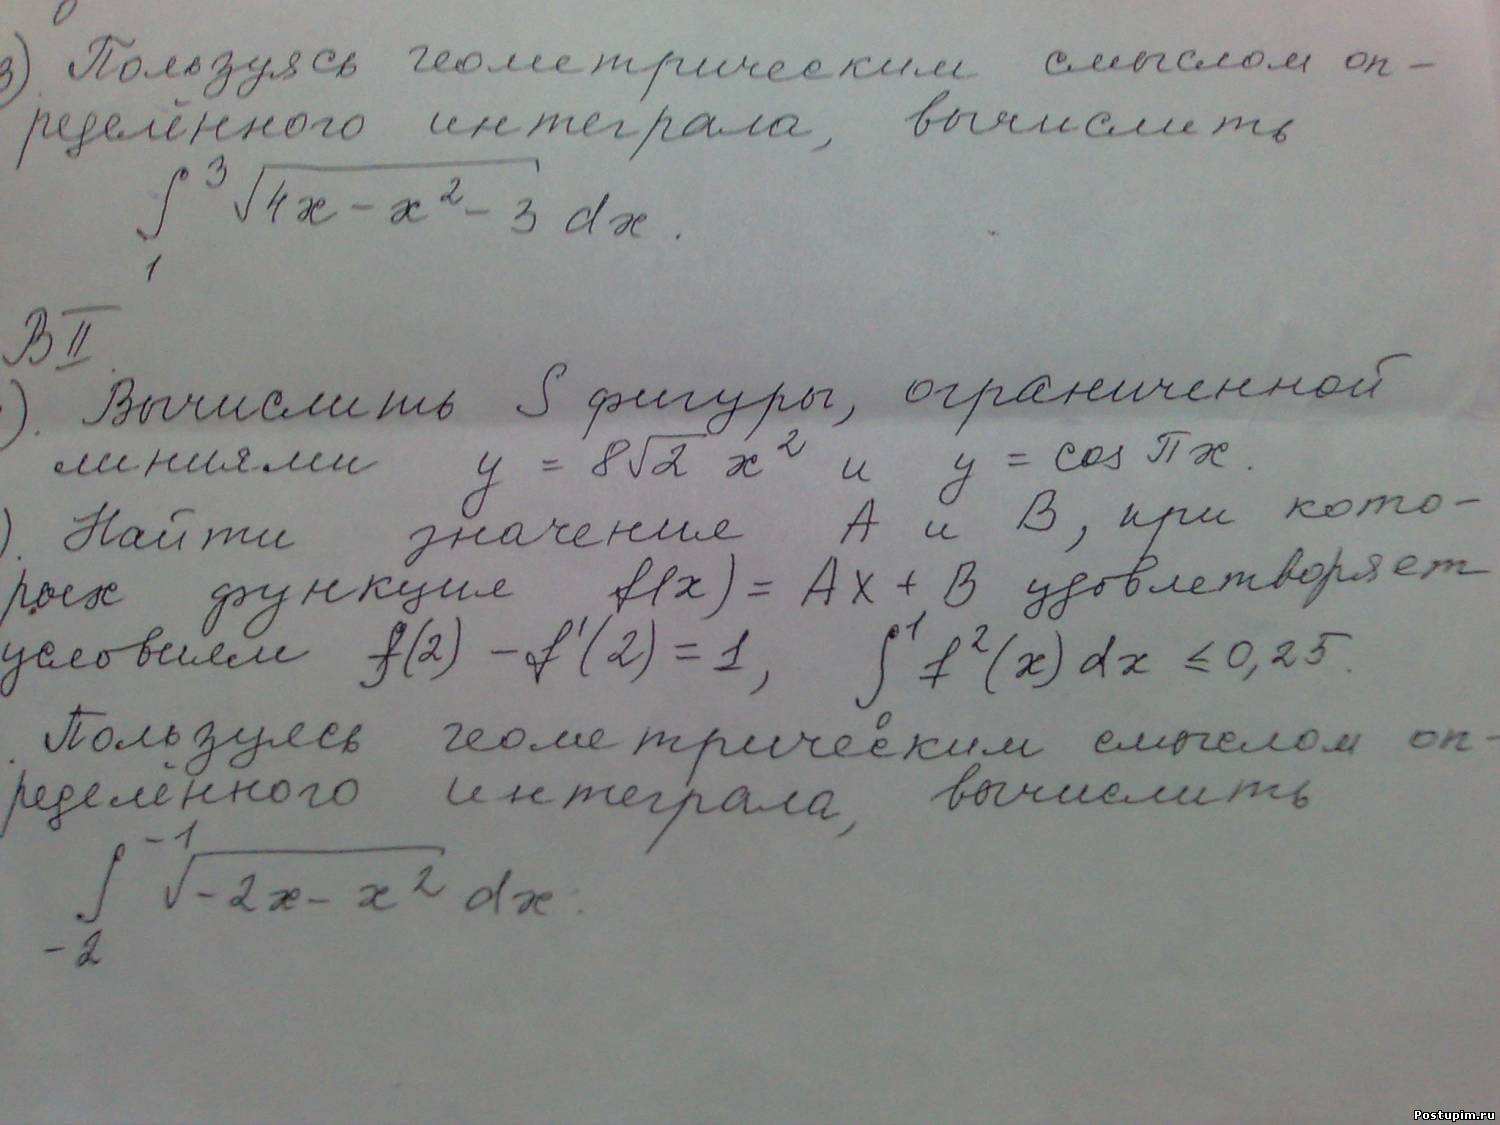 3) Пользуясь геометрическим смыслом оп-
ределённого интеграла, вычислить
∫₁³ √(4x - x² - 3) dx.
В II.
). Вычислить S фигуры, ограниченной
линиями y = 8√2 x² и y = cos πx.
). Найти значение A и B, при кото-
рых функция f(x) = Ax + B удовлетворяет
условиям f(2) - f'(2) = 1, ∫₀¹ f²(x) dx ≤ 0,25.
. Пользуясь геометрическим смыслом оп-
ределённого интеграла, вычислить
∫₋₂⁻¹ √(-2x - x²) dx.
Postupim.ru